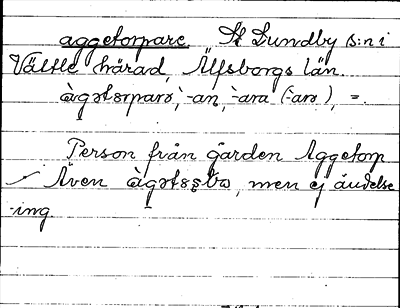 aggetorpare. St Lundby s:n i
Vättle härad, Älfsborgs län.
àgətorparə, -an, -ara (-arə), =.
Person från gården Aggetorp
Även àgətoşbə, men ej ändelse
-ing